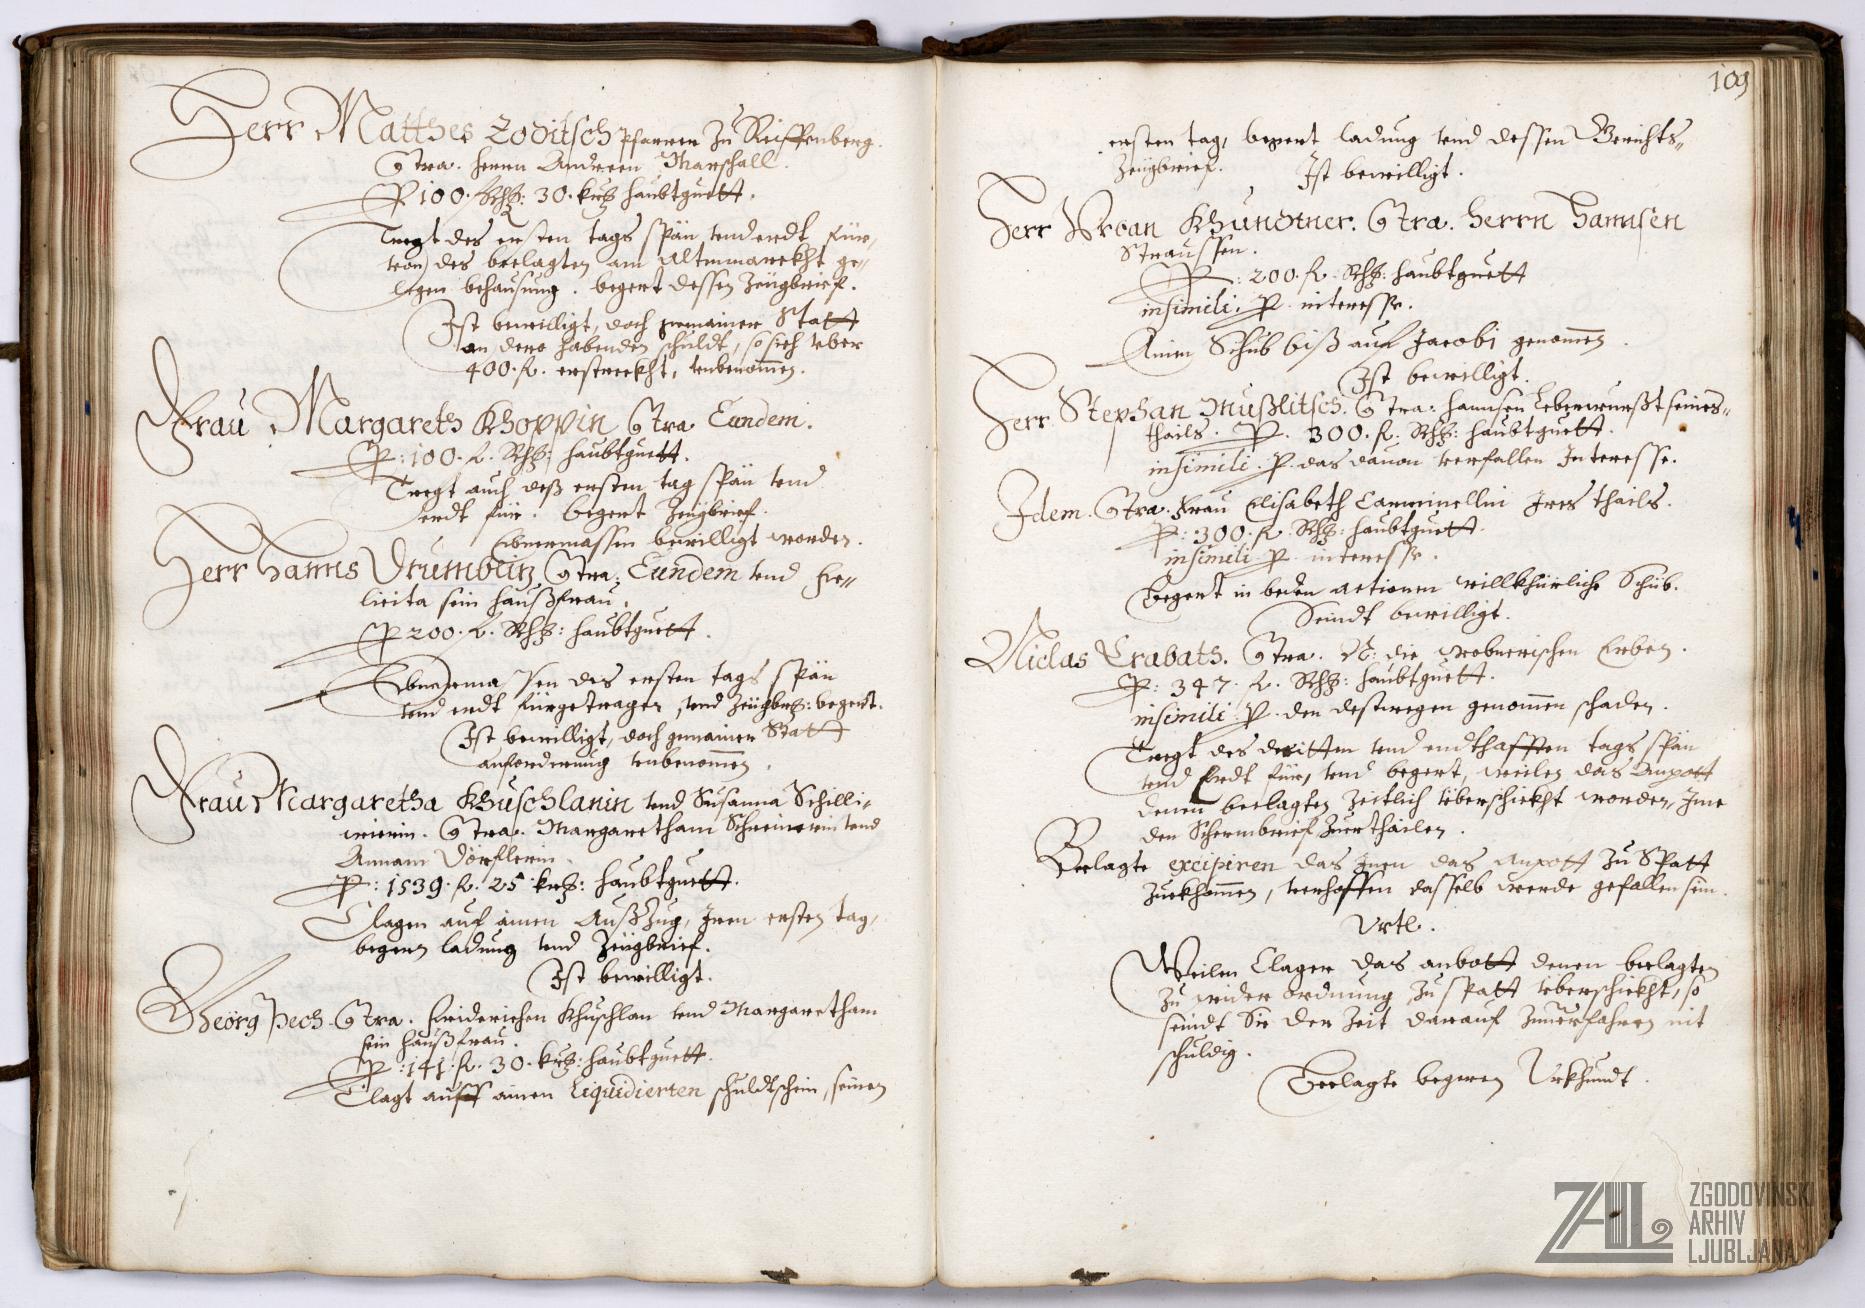 Herr Matthes Zobitsch Pfarrer Zu Reiffenberg.
Ctra. Herrn Andreen Marschall.
P 100. Rh: 30. krz haubtguett.
Tregt des ersten tags spän vnd erdt für,
von des beclagten am Altenmarckht ge-
legen behausung. begert dessen Zeugbrief.
Ist bewilligt, doch gemainer Statt
an dero habenden schuldt, so sich vber
400. f. erstreckht, vnbenomen.
Frau Margareth Khoppin Ctra Eundem.
P: 100. f. Rh: haubtguett.
Tregt auch deß ersten tag spän vnd
erdt für. begert Zeugbrief.
Ebnermassen bewilligt worden.
Herr Hanns Vrumbein Ctra. Eundem vnd Fe-
licita sein Haußfrau.
P 200. f. Rh: haubtguett.
Ebnermassen des ersten tags spän
vnd erdt fürgetragen, vnd Zeugbrf: begert.
Ist bewilligt, doch gemainer Statt
anforderung vnbenomen.
Frau Margaretha Khuschlanin vnd Susanna Schilli-
Ctra. Margaretham Schreinerin vnd
Annam Dörflerin.
P: 1539. f. 25 krz: haubtguett.
Clagen auf ainen Außzug, Iren ersten tag,
begern ladung vnd Zeugbrief.
Ist bewilligt.
Geörg Pech Ctra. Friderichen Khuschlan vnd Margaretham
sein Haußfrau.
P: 141. f. 30. krz: haubtguett.
Clagt auff ainen Liquidierten schuldtschein, seinen
109
ersten tag, begert ladung vnd dessen Gerichts-
Zeugbrief. Ist bewilligt.
Herr Vrban Khundtner. Ctra. Herrn Hannsen
Straussen.
P: 200. f. Rh: haubtguett
insimili. P. interesse.
Ainen Schub biß auf Jacobi genomen.
Ist bewilligt.
Herr Stephan Mußlitsch. Ctra: Hannsen Leberwurßt seines-
thails. P. 300. f. Rh: haubtguett.
insimili. P. das dauon verfallen Interesse.
Idem. Ctra. Frau Elisabeth Carminellin Ires thails.
P: 300. f. Rh: haubtguett.
insimili P. interesse.
Begert in beden actionen willkhürliche Schub.
Seindt bewilligt.
Niclas Crabath. Ctra. die Erben.
P: 347. f. Rh: haubtguett.
insimili. P. den destwegen genomen schaden.
Tregt des dritten vnd endthafften tags spän
vnd Erdt für, vnd begert, weilen das Anpott
denen beclagten Zeitlich vberschickht worden, Ime
den Schermbrief Zuerthailen.
Beclagte excipiren das Inen das anpott Zu Spatt
Zuekhomen, verhoffen dasselb werde gefallen sein.
Vrtl.
Weilen Clager das anbott denen beclagten
Zu wider ordnung Zu spatt vberschickht, so
seindt Sie der Zeit darauf Zuuerfahren nit
schuldig.
Beclagte begeren Vrkhundt.
ZAL ZGODOVINSKI
ARHIV
LJUBLJANA